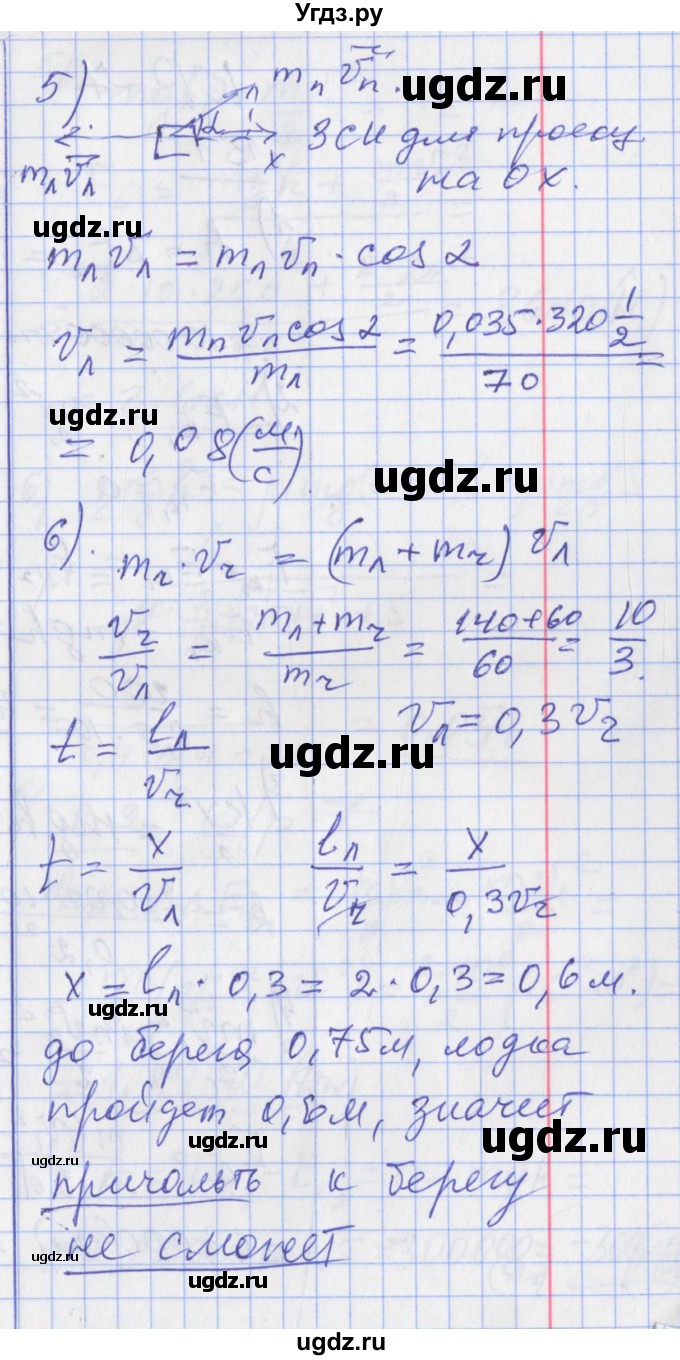 Угдз.ру
5)
mₙ v̄ₙ.
ugdz.ru
ЗСИ для проекц
x
m_л v̄_л
на ОX.
ugdz.ru
ugdz.ru
m_л v_л = m_п v_п · cos α
v_л = (m_п v_п cos α)/m_л = (0,035·320 1/2)/70 =
ugdz.ru
= 0,08 (м/с).
ugdz.ru
6).
m_ч · v_ч = (m_л + m_ч) v_л
ugdz.ru
v_ч/v_л = (m_л + m_ч)/m_ч = (140+60)/60 = 10/3.
t = l_л/v_ч
ugdz.ru
v_л = 0,3 v_ч
t = x/v_л
l_л/v_ч = x/(0,3 v_ч)
x = l_л · 0,3 = 2 · 0,3 = 0,6 м.
ugdz.ru
до берега 0,75м, лодка
пройдет 0,6м, значит
ugdz.ru
ugdz.ru
ugdz.ru
причалть к берегу
не сможет
ugdz.ru
ugdz.ru
ugdz.ru